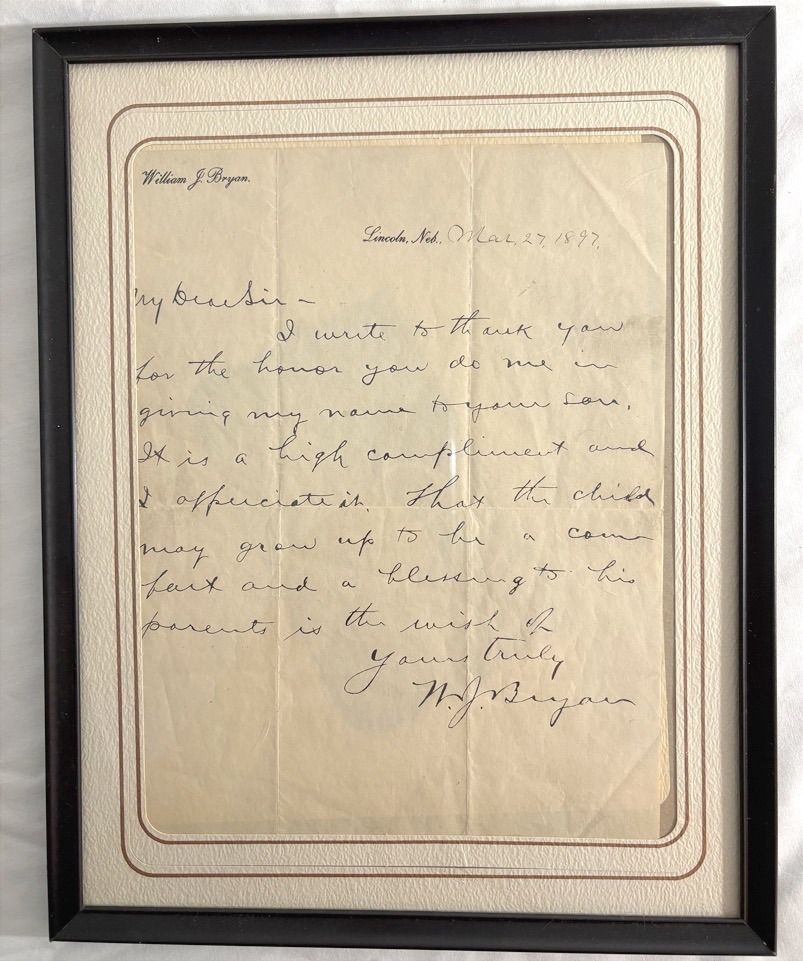 William J. Bryan.
Lincoln, Neb., Mar, 27, 1897,
My Dear Sir –
I write to thank you
for the honor you do me in
giving my name to your son.
It is a high compliment and
I appreciate it. That the child
may grow up to be a com
fort and a blessing to his
parents is the wish of
Yours truly
W. J. Bryan